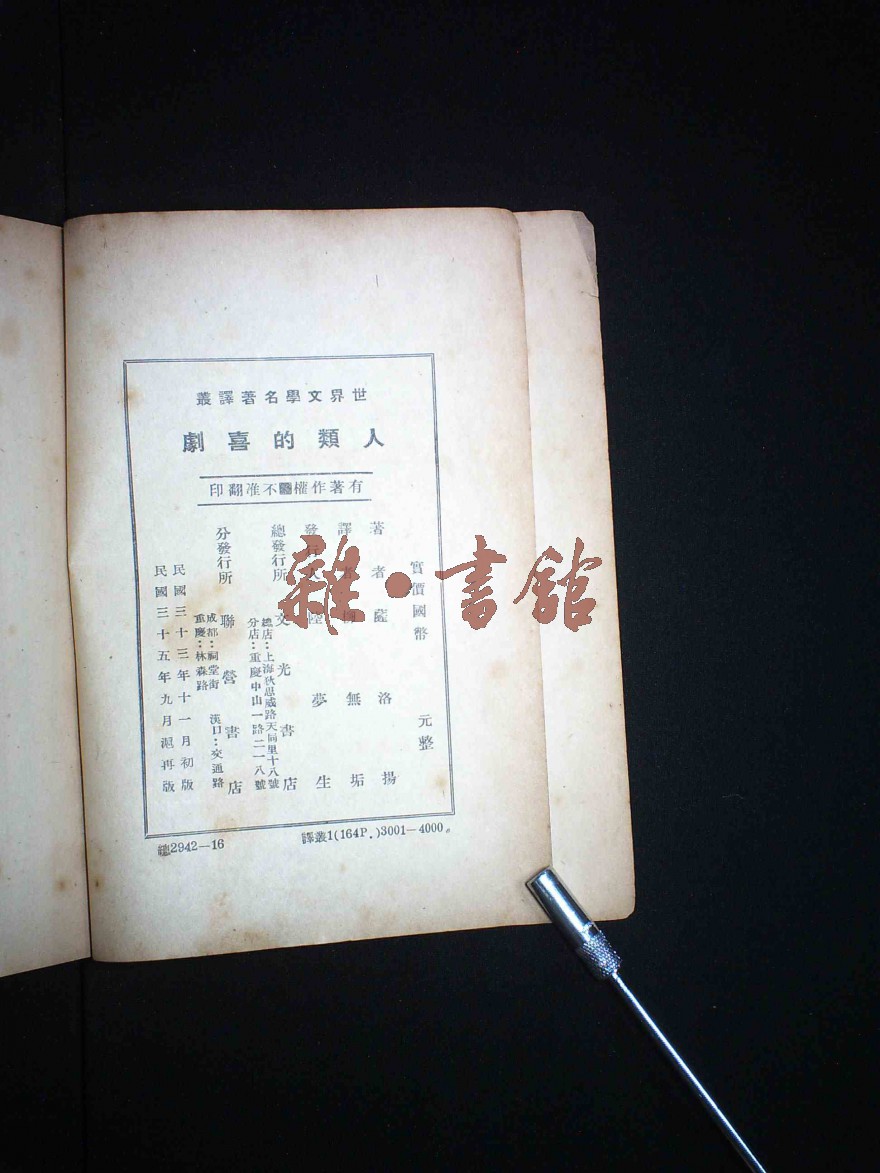 世界文學名著譯叢
人類的喜劇
有著作權不准翻印
實價國幣 元整
著者 薩洛揚
譯者 無垢
發行人 陸夢生
總發行所 文光書店
總店：上海狄思威路天同里十八號
分店：重慶中山一路二一八號
分發行所 聯營書店
成都：祠堂街 漢口：交通路
重慶：林森路
民國三十三年十一月初版
民國三十五年九月滬再版
總2942—16
譯叢1(164P.)3001—4000。
雜·書館